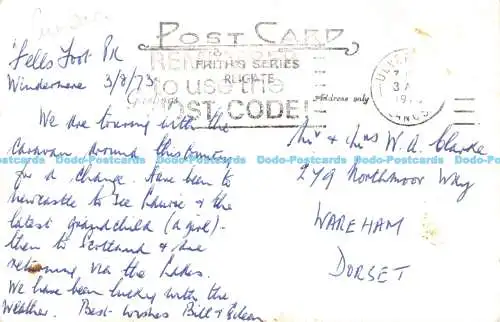 POST CARD
FRITH'S SERIES
REIGATE
REMEMBER
to use the
POST CODE!
Address only
Fells Foot Pk
Windermere 3/8/73
We are touring with the
caravan around this country
for a change. Have been to
Newcastle to see Laurie & the
latest grandchild (a girl) -
then to Scotland & are
returning via the Lakes.
We have been lucky with the
weather. Best wishes Bill & Eileen
Mr & Mrs W. A. Clarke
279 Northmoor Way
WAREHAM
DORSET
Dodo-Postcards Dodo-Postcards Dodo-Postcards Dodo-Postcards Dodo-Postcards Dodo-Postcards